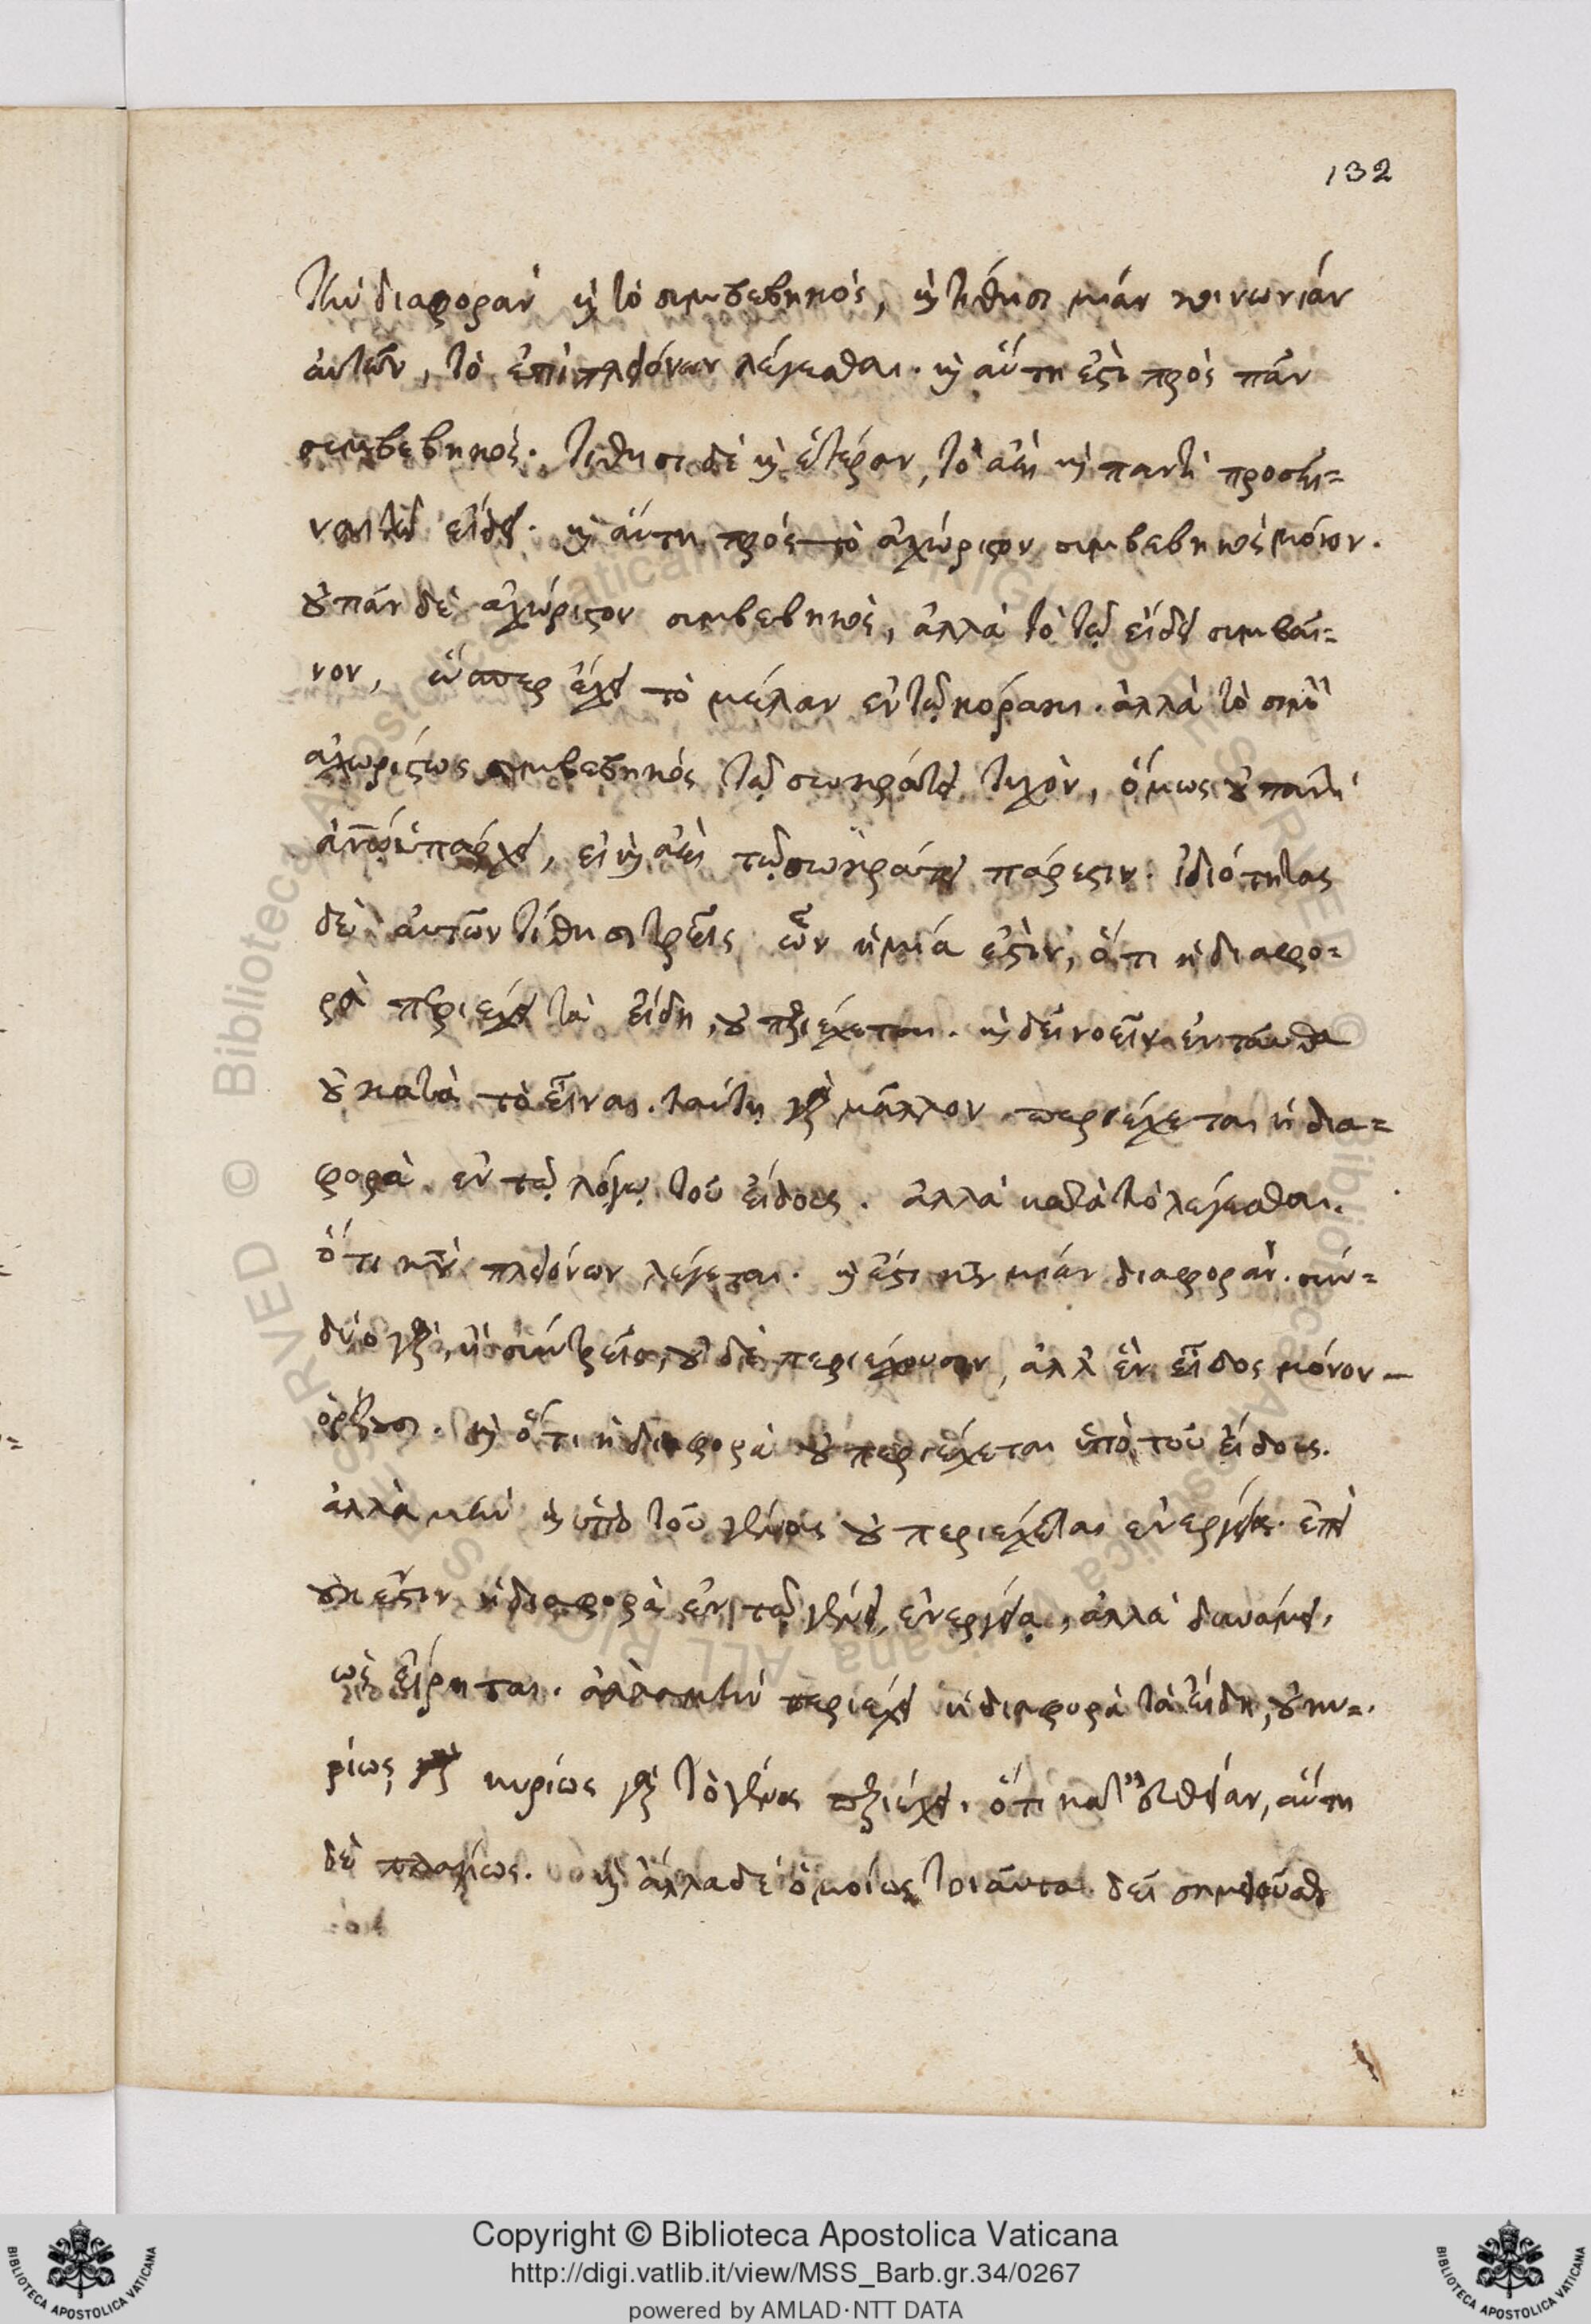 132
τὴν διαφορὰν καὶ τὸ συμβεβηκὸς, καὶ τίθησι μίαν κοινωνίαν
αὐτῶν, τὸ ἐπὶ πλειόνων λέγεσθαι. καὶ αὕτη ἐστὶ πρὸς πᾶν
συμβεβηκός. τίθησι δὲ καὶ ἑτέραν, τὸ ἀεὶ καὶ παντὶ προσεῖ-
ναι τῷ εἴδει. καὶ αὕτη πρὸς τὸ ἀχώριστον συμβεβηκὸς μόνον.
οὐ πᾶν δὲ ἀχώριστον συμβεβηκὸς, ἀλλὰ τὸ τῷ εἴδει συμβαῖ-
νον, ὥσπερ ἔχει τὸ μέλαν ἐν τῷ κόρακι. ἀλλὰ τὸ σιμὸν
ἀχωρίστως συμβεβηκὸς τῷ σωκράτει τυχὸν, ὅμως οὐ παντὶ
ἀνθρώπῳ ὑπάρχει, εἰ καὶ ἀεὶ τῷ σωκράτει πάρεστιν. ἰδιότητας
δὲ αὐτῶν τίθησι τρεῖς ὧν ἡ μία ἐστὶν, ὅτι ἡ διαφο-
ρὰ περιέχει τὰ εἴδη, οὐ περιέχεται. καὶ δεῖ νοεῖν ἐνταῦθα
οὐ κατὰ τὸ εἶναι. ταύτῃ γὰρ μᾶλλον περιέχεται ἡ δια-
φορὰ ἐν τῷ λόγῳ τοῦ εἴδους. ἀλλὰ κατὰ τὸ λέγεσθαι.
ὅτι κατὰ πλειόνων λέγεται. καὶ ἔστι κατὰ μίαν διαφοράν. σὺν
δύο γὰρ, ἢ σὺν τρεῖς, οὐδὲ περιέχουσιν, ἀλλ' ἓν εἶδος μόνον
ὁρίζουσι. καὶ ὅτι ἡ διαφορὰ οὐ περιέχεται ὑπὸ τοῦ εἴδους.
ἀλλὰ μὴν καὶ ὑπὸ τοῦ γένους οὐ περιέχεται ἐνεργείᾳ. ἐπεὶ
οὐκ ἔστιν ἡ διαφορὰ ἐν τῷ γένει, ἐνεργείᾳ, ἀλλὰ δυνάμει,
ὡς εἴρηται. ἀλλὰ μὴν περιέχει ἡ διαφορὰ τὰ εἴδη, οὐ κυ-
ρίως, κυρίως γὰρ τὸ γένος περιέχει. ὅτι κατ' εὐθεῖαν, αὕτη
δὲ πλαγίως. καὶ ἄλλα δὲ ὁμοίως τοιαῦτα δεῖ σημειοῦσθαι
Copyright © Biblioteca Apostolica Vaticana
http://digi.vatlib.it/view/MSS_Barb.gr.34/0267
powered by AMLAD·NTT DATA